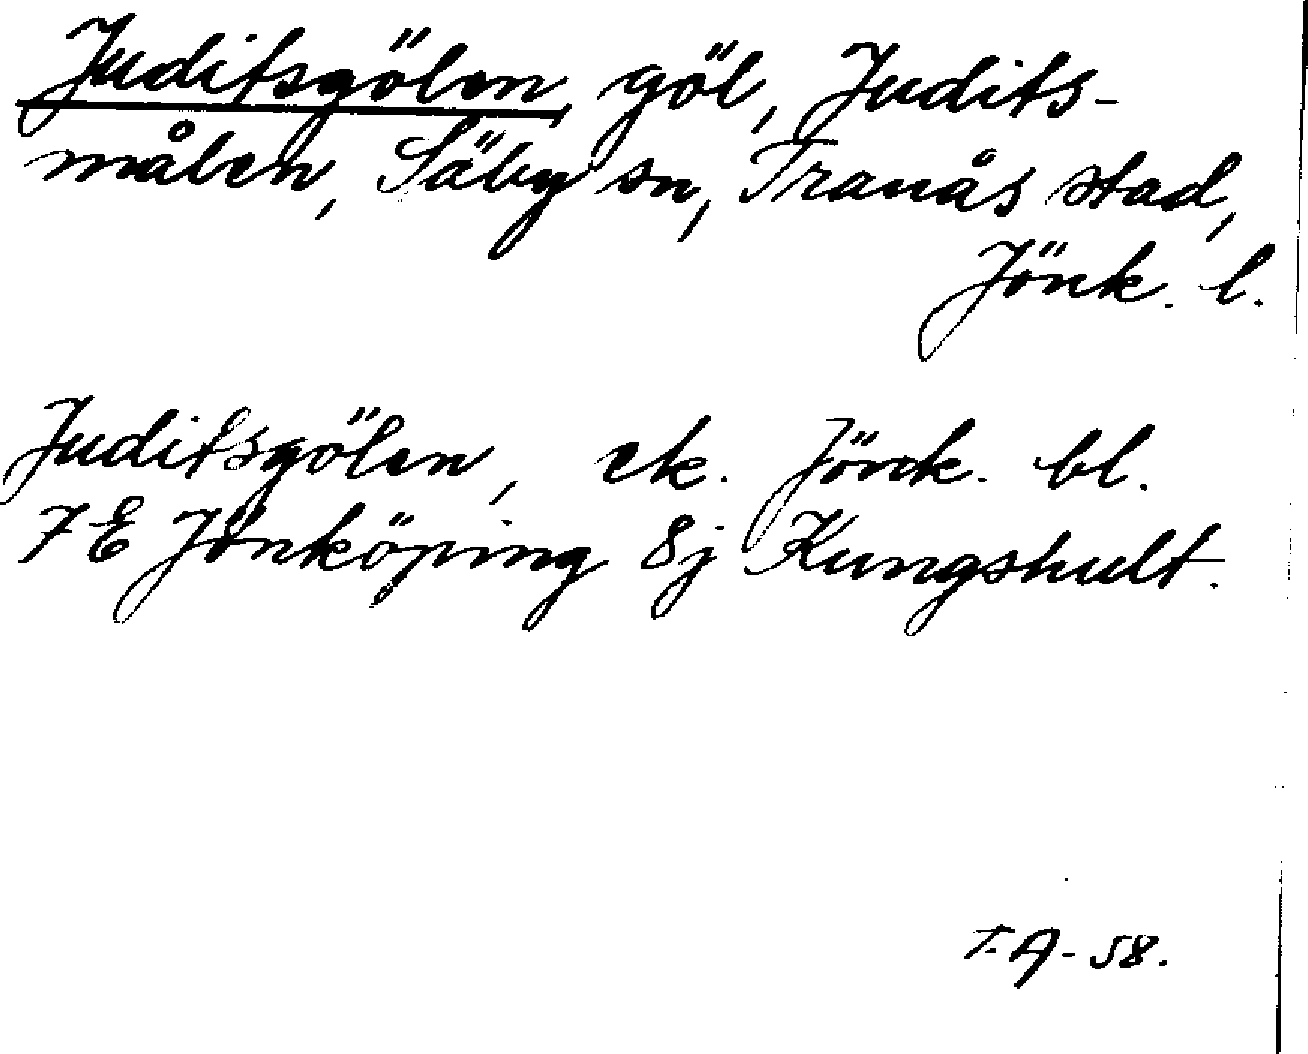 Juditsgölen, göl, Judits-
målen, Säby sn, Tranås stad,
Jönk. l.
Juditsgölen, ek. Jönk. bl.
7 E Jönköping 8j Kungshult.
T.A-58.